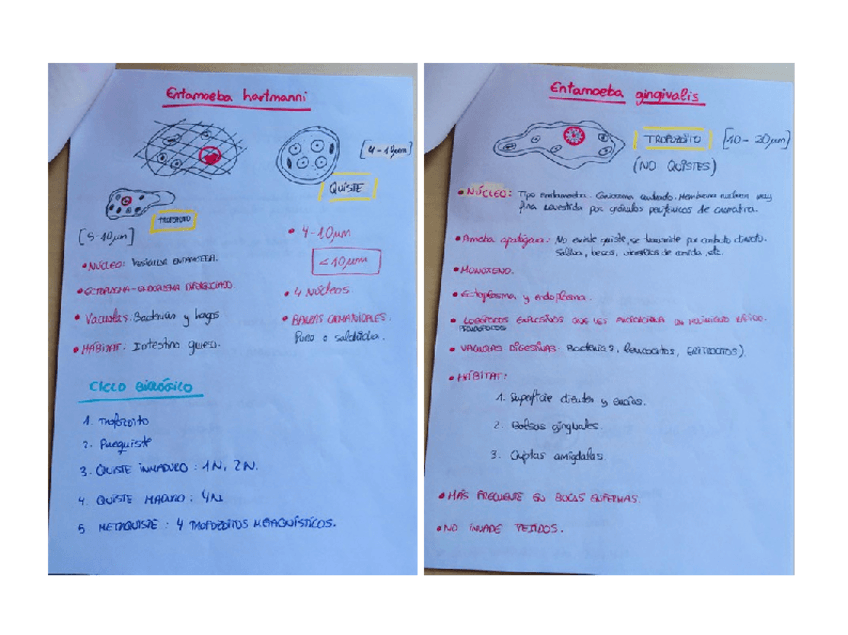 Entamoeba hartmanni
[4-10µm]
QUISTE
TROFOZOITO
[5-10µm]
• 4-10µm
< 10µm
• NÚCLEO:
• ECTOPLASMA-ENDOPLASMA DIFERENCIADO.
• 4 NÚCLEOS
• Vacuolas: Bacterias y hongos
• BARRAS CROMATOIDALES.
Puro o salchicha.
• HÁBITAT: Intestino grueso.
CICLO BIOLÓGICO
1. TROFOZOITO
2. Prequiste
3. QUISTE INMADURO: 1N, 2N.
4. QUISTE MADURO: 4N
5 METAQUISTE: 4 TROFOZOITOS METAQUÍSTICOS.
Entamoeba gingivalis
TROFOZOITO [10-20µm]
(NO QUISTES)
• NÚCLEO: Tipo entamoeba. Cariosoma centrado. Membrana nuclear muy
fina revestida por gránulos periféricos de cromatina.
• Ameba No existe quiste, se transmite por contacto directo.
Saliva, besos, utensilios de comida, etc.
• MONOXENO.
• Ectoplasma y endoplasma.
• LOBOPODIOS EXPLOSIVOS QUE LES PROPORCIONA UN MOVIMIENTO RÁPIDO.
• VACUOLAS DIGESTIVAS: Bacterias, leucocitos, ERITROCITOS).
• HÁBITAT:
1. Superficie dientes y encías.
2. Bolsas gingivales.
3. Criptas amígdalas.
• MÁS FRECUENTE EN BOCAS ENFERMAS.
• NO INVADE TEJIDOS.